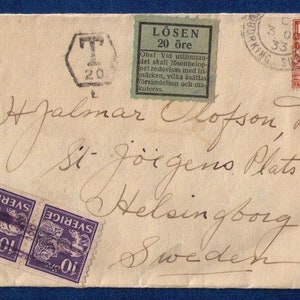 T
20
L
LÖSEN
20 öre
Obs! Vid utlämnan-
det skall lösenbelop-
pet redovisas med fri-
märken, vilka åsättas
försändelsen och ma-
kuleras.
33
Hjalmar Olofson,
St Jörgens Plats
Helsingborg
Sweden
SVERIGE
10
SVERIGE
10